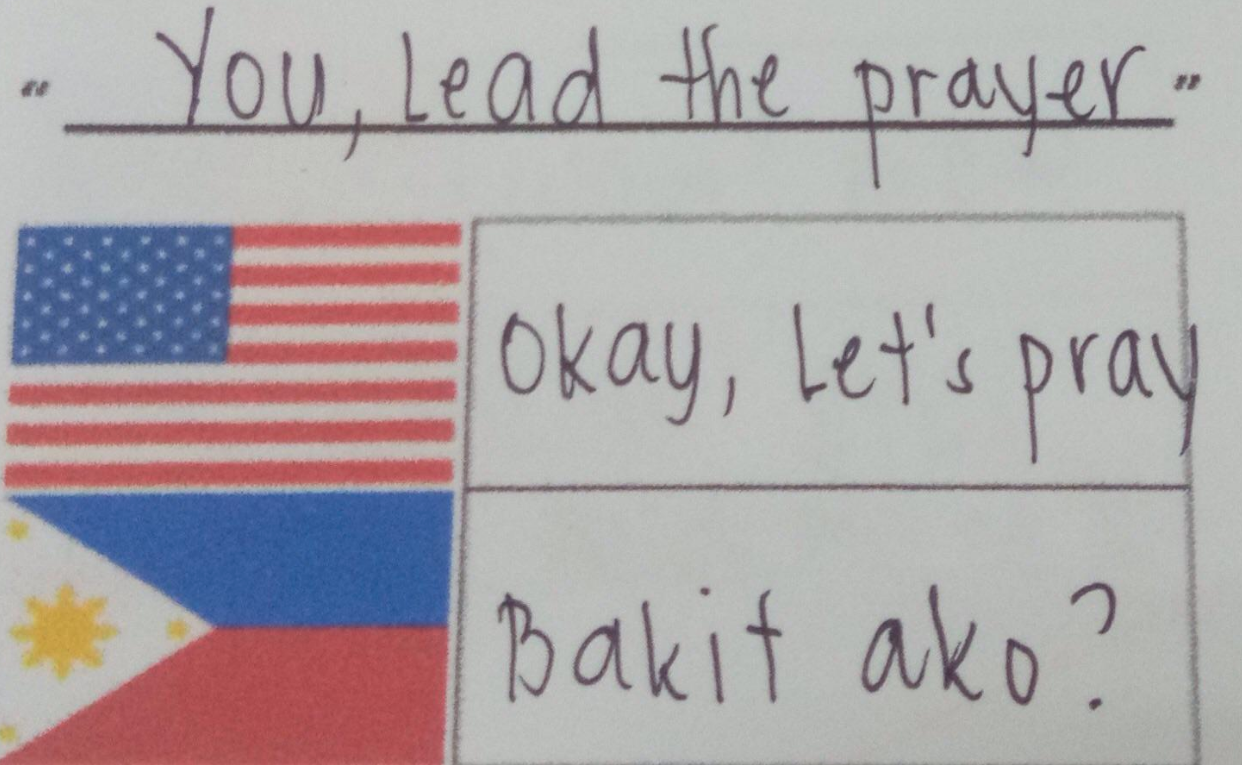 “ You, Lead the prayer ”
Okay, Let's pray
Bakit ako?